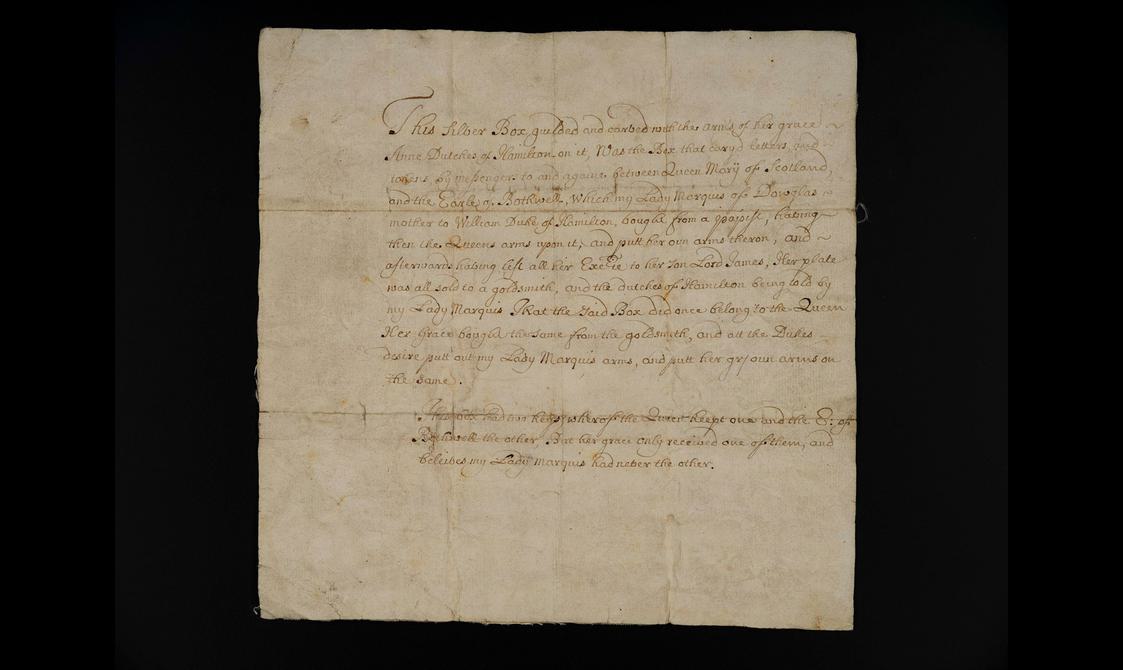 This Silver Box, guilded and carved with the arms of her grace ~
Anne Dutches of Hamilton on it, Was the Box that cary'd letters, and
tokens by messenger to and againe between Queen Mary of Scotland,
and the Earle of Bothwell, Which my Lady Marquis of Dowglas ~
mother to William Duke of Hamilton, bought from a papist, haveing
then the Queens arms upon it, and putt her own arms theron, and ~
afterwards haveing left all her to her son Lord James, Her plate
was all sold to a goldsmith, and the dutches of Hamilton being told by
my Lady Marquis That the said Box did once belong to the Queen
Her Grace bought the same from the goldsmith, and att the Dukes
desire putt out my Lady Marquis arms, and putt her own arms on
the same.
This box had two keyes wherof the Queen keept one and the E: of
Bothwell the other. But her grace only received one of them, and
beleives my Lady Marquis had never the other.